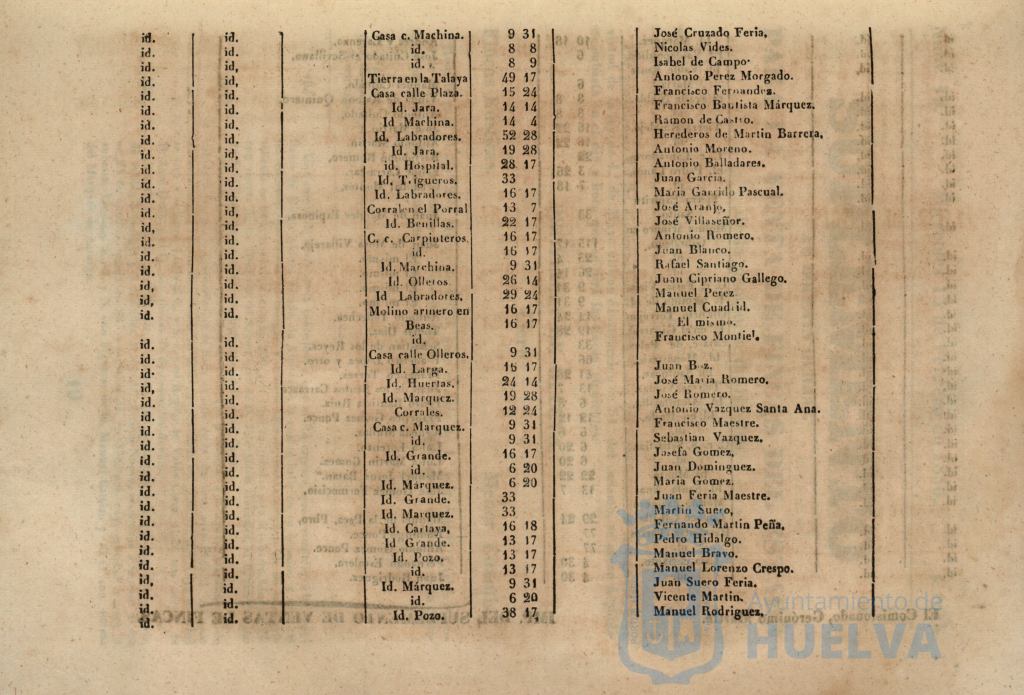 id. id. Casa c. Machina. 9 31 José Cruzado Feria,
id. id. id. 8 8 Nicolas Vides.
id. id. id. 8 9 Isabel de Campo.
id. id. Tierra en la Talaya 49 17 Antonio Perez Morgado.
id. id. Casa calle Plaza. 15 24 Francisco Fernandez.
id. id. Id. Jara. 14 14 Francisco Bautista Márquez.
id. id. Id Machina. 14 4 Ramon de Castro.
id. id. Id. Labradores. 52 28 Herederos de Martin Barrera,
id. id. Id. Jara. 19 28 Antonio Moreno.
id. id. id. Hospital. 28 17 Antonio Balladares.
id. id. Id. Trigueros. 33 Juan Garcia.
id. id. Id. Labradores. 16 17 Maria Garrido Pascual.
id. id. Corral en el Porral 13 7 José Aranjo,
id. id. Id. Benillas. 22 17 José Villaseñor.
id. id. C. c. Carpinteros 16 17 Antonio Romero,
id. id. id. 16 17 Juan Blanco.
id. id. Id. Marchina. 9 31 Rafael Santiago.
id. id. Id. Olleros 26 14 Juan Cipriano Gallego.
id. id. Id Labradores, 29 24 Manuel Perez
id. id. Molino arinero en 16 17 Manuel Cuadrid.
Beas. 16 17 El mismo.
id. id. id. Francisco Montiel.
id. id. Casa calle Olleros. 9 31
id. id. Id. Larga. 16 17 Juan
id. id. Id. Huertas. 24 14 José Maria Romero,
id. id. Id. Marquez. 19 28 José Romero.
id. id. Corrales. 12 24 Antonio Vazquez Santa Ana.
id. id. Casa c. Marquez. 9 31 Francisco Maestre.
id. id. id. 9 31 Sebastian Vazquez,
id. id. Id. Grande. 16 17 Josefa Gomez,
id. id. id. 6 20 Juan Dominguez.
id. id. Id. Márquez. 6 20 Maria Gomez.
id. id. Id. Grande. 33 Juan Feria Maestre.
id. id. Id. Marquez. 33 Martin Suero,
id. id. Id. Cartaya, 16 18 Fernando Martin Peña,
id. id. Id Grande. 13 17 Pedro Hidalgo.
id. id. Id. Pozo, 13 17 Manuel Bravo.
id. id. id. 13 17 Manuel Lorenzo Crespo.
id. id. Id. Márquez. 9 31 Juan Suero Feria.
id. id. id. 6 20 Vicente Martin.
id. id. Id. Pozo. 38 17 Manuel Rodriguez.
Ayuntamiento de
HUELVA